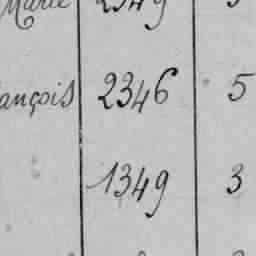 Marie 2349 3
ançois 2346 5
1349 3